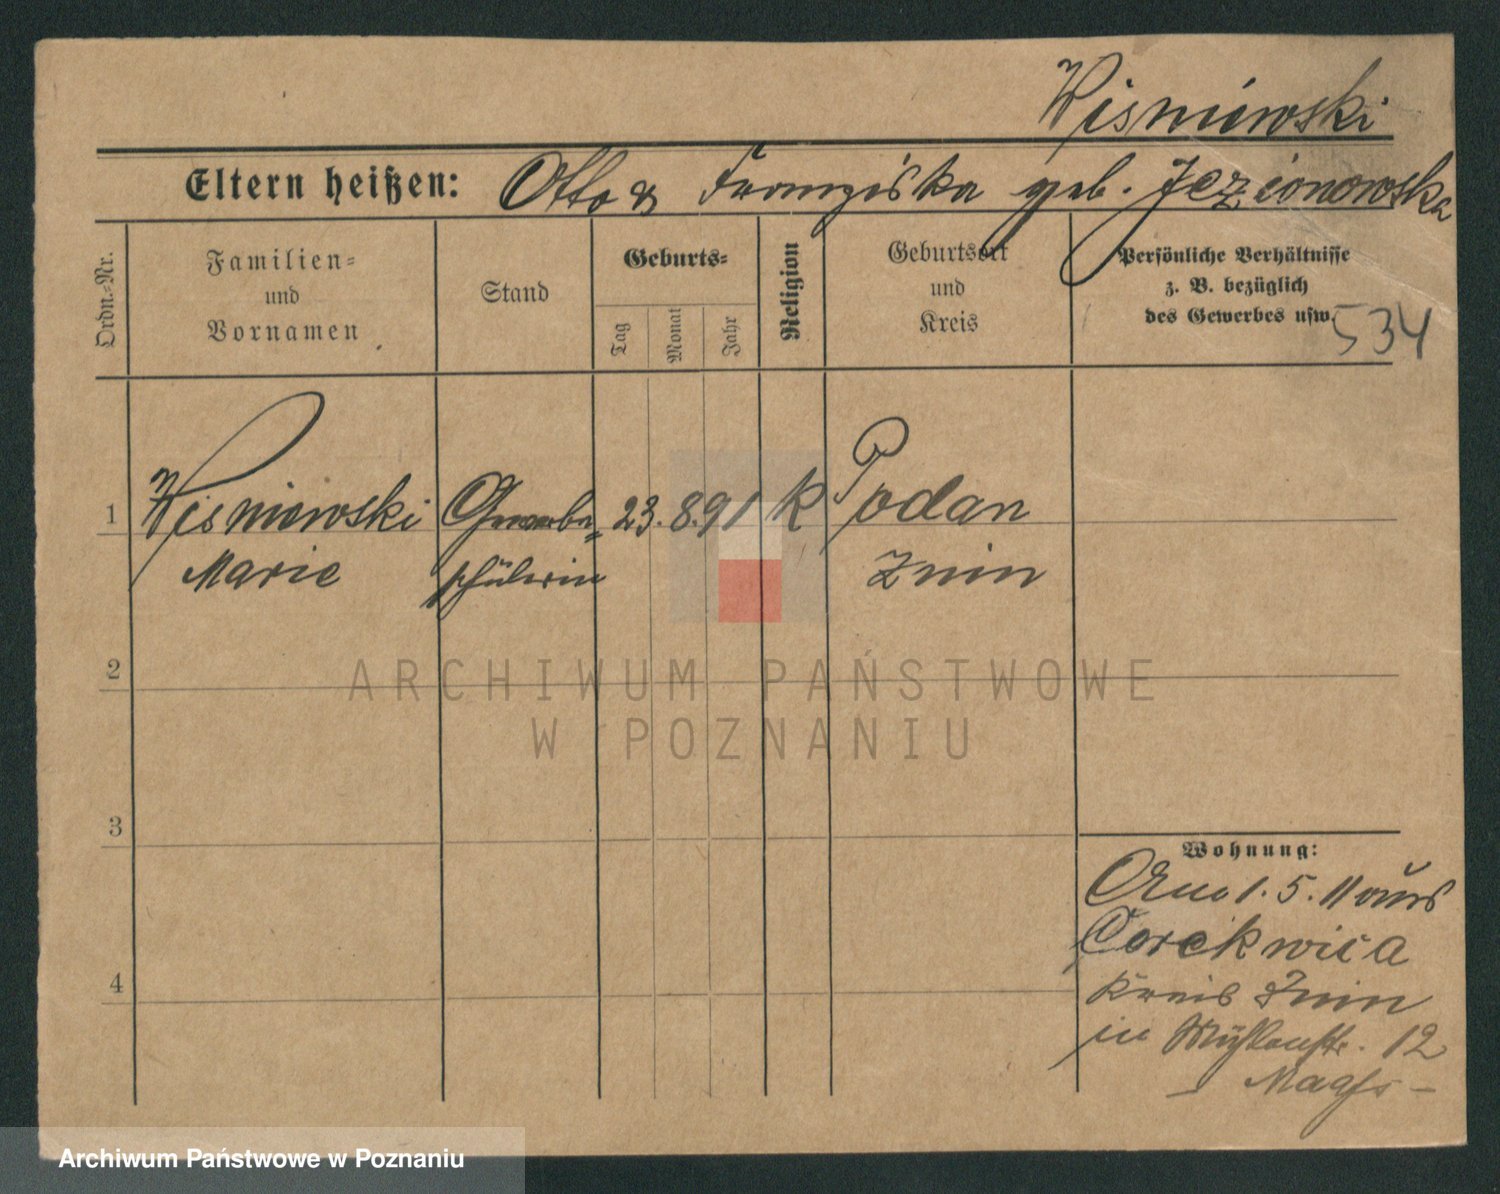 Wisniewski
Eltern heißen: Otto & Franziska geb. Jezionowska
Ordn.=Nr.
Familien= und Vornamen
Stand
Geburts=
Tag
Monat
Jahr
Religion
Geburtsort und Kreis
Persönliche Verhältnisse
z. B. bezüglich
des Gewerbes usw.
534
1 Wisniewski Gewerbe= 23. 8. 91 k Podan
Marie schülerin Znin
2
3
4
Wohnung:
1. 5. 11 aus
Kreis Znin
in Mühlenstr. 12
ARCHIWUM PAŃSTWOWE
W POZNANIU
Archiwum Państwowe w Poznaniu